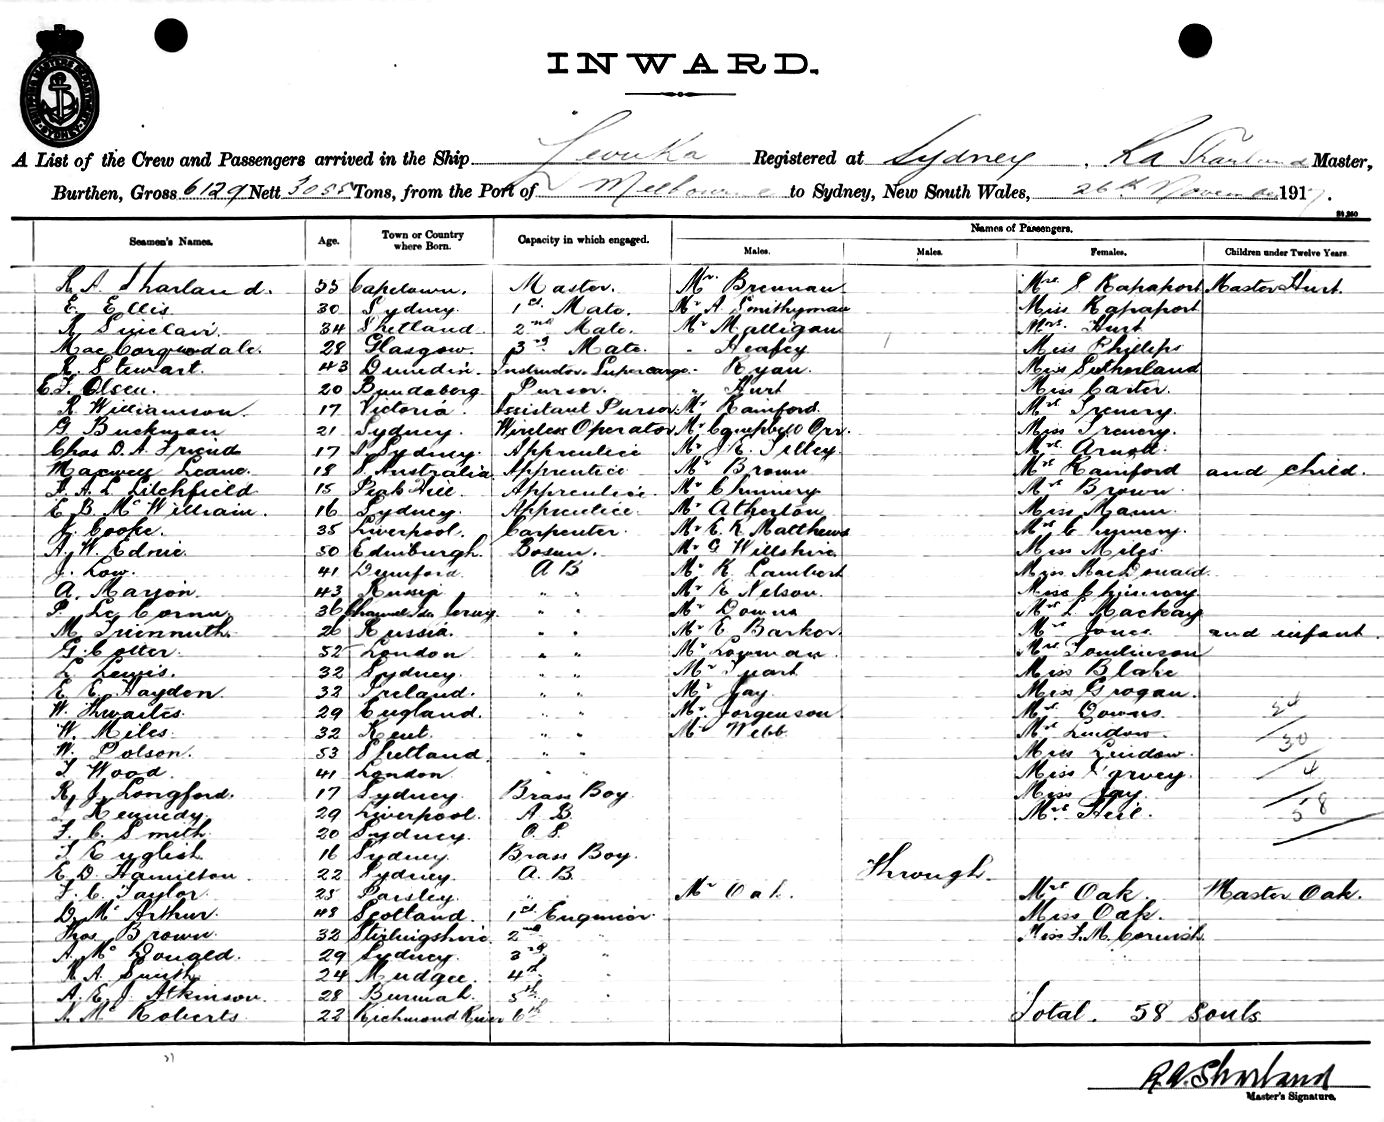 INWARD.
A List of the Crew and Passengers arrived in the Ship Levuka Registered at Sydney, R A Sharland Master,
Burthen, Gross 6129 Nett 3055 Tons, from the Port of Melbourne to Sydney, New South Wales, 26th November 1917.
Names of Passengers.
Seamen's Names. Age. Town or Country where Born. Capacity in which engaged. Males. Males. Females. Children under Twelve Years
R A Sharland. 35 Capetown. Master. Mr. Brennan Mrs S Rapaport Master Hurt.
E. Ellis 30 Sydney. 1st Mate. Mr A Smithyman Miss Rapaport
R Sinclair. 34 Shetland 2nd Mate. Mr Mulligan Mrs. Hurt
Mac Corquodale. 28 Glasgow. 3rd Mate. " Heafey Miss Phillips
R. Stewart. 43 Dunedin. Instructor Supercargo. " Ryan. Miss Sutherland
E. J. Olsen. 20 Bundaberg Purser. " Hurt Miss Carter.
R Williamson. 17 Victoria. Assistant Purser. Mr Ramford. Mrs Trenery.
G Buckman 21 Sydney. Wireless Operator Mr Campbell Orr. Miss Trenery.
Chas D. A. Friend 17 Sydney. Apprentice Mr J. E. Tilley. Mrs Arnold.
Maxwell Leane. 18 S. Australia Apprentice Mr Brown Mrs Ramford and child.
A. A. L. Litchfield 15 Peak Hill. Apprentice. Mr Chinnery Mrs Brown
E B McWilliam. 16 Sydney. Apprentice. Mr Atherton Miss Mann
J. Cooke. 35 Liverpool. Carpenter. Mr E. K. Matthews Mrs Chinnery.
A. W. Ednie. 50 Edinburgh. Bosun. Mr G Willshire Miss Miles.
J. Low. 41 A B Mr R Lambert Miss MacDonald.
A. Marjon. 43 Russia " " Mr E Nelson. Miss Chinnery
P. Le Cornu 36 " " Mr Downs Mrs L. Mackay
M. 26 Russia. " " Mr E Barker. Mrs Jones and infant
G. Cotter. 52 London " " Mr Lowman Mrs Tomlinson
L Lewis. 32 Sydney. " " Mr Miss Blake
E E. Haydon. 32 Ireland. " " Mr Jay. Miss Grogan.
W. Thwaites. 29 England. " " Mr. Jorgenson Mrs Downs 24
W. Miles. 32 Kent. " " Mr Webb Mrs Lindow. 30
W. Polson. 53 Shetland " " Miss Lindow. 4
J Wood. 41 London " " Miss Harvey.
R. J. Longford. 17 Sydney Brass Boy Miss Jay 58
Kennedy. 29 Liverpool. A. B. Mrs
F. C. Smith 20 Sydney. O. S.
J English 16 Sydney. Brass Boy.
E D. Hamilton. 22 Sydney. A. B. Through.
F. C. Taylor. 25 Paisley. " Mr Oak. Mrs Oak Master Oak.
D. McArthur. 48 Scotland. 1st Engineer. Miss Oak.
Thos Brown. 32 Stirlingshire. 2nd " Miss F. M. Cornish
A. McDougald. 29 Sydney. 3rd "
R A. Smith 24 Mudgee. 4th "
A. E. J. Atkinson. 28 Burmah. 5th "
A McRoberts 22 Richmond River 6th " Total. 58 souls.
R.A. Sharland
Master's Signature.